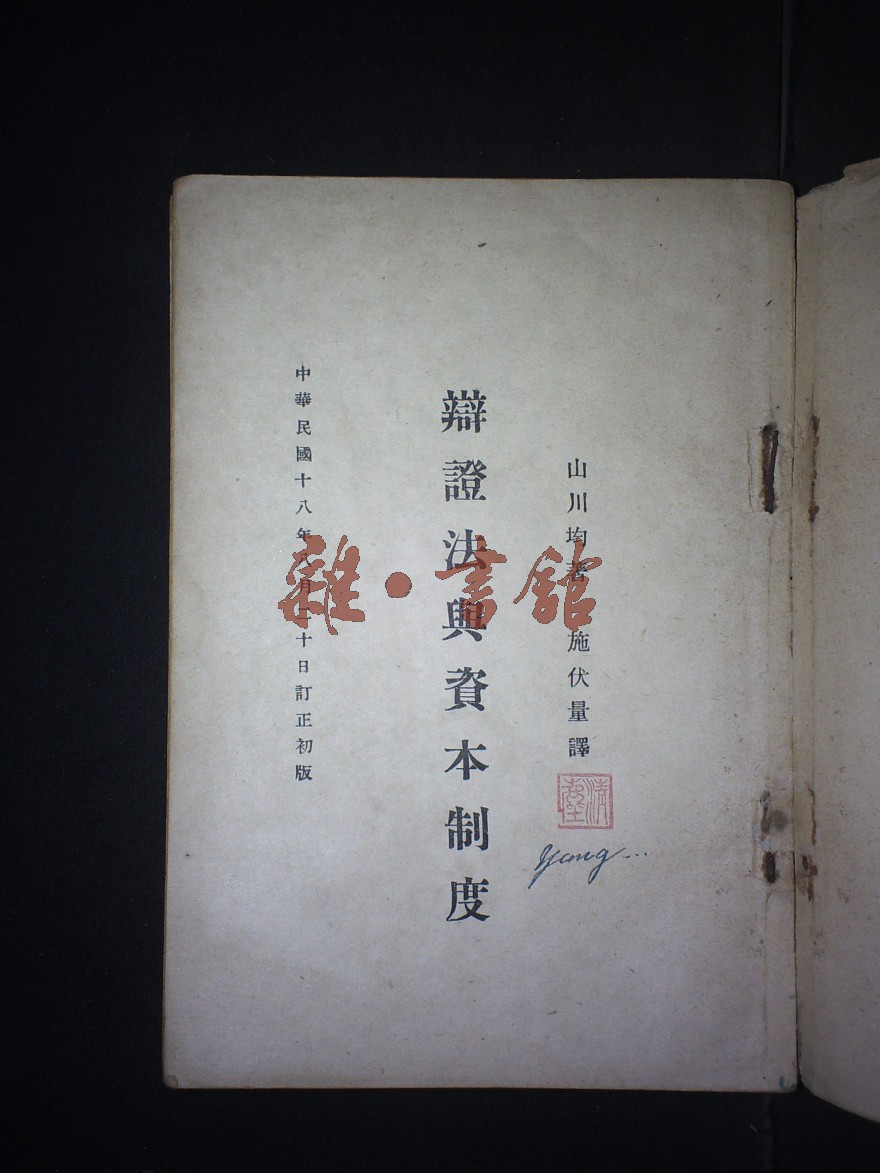 山川均著 施伏量譯
yang...
辯證法與資本制度
中華民國十八年月二十日訂正初版
雜·書館